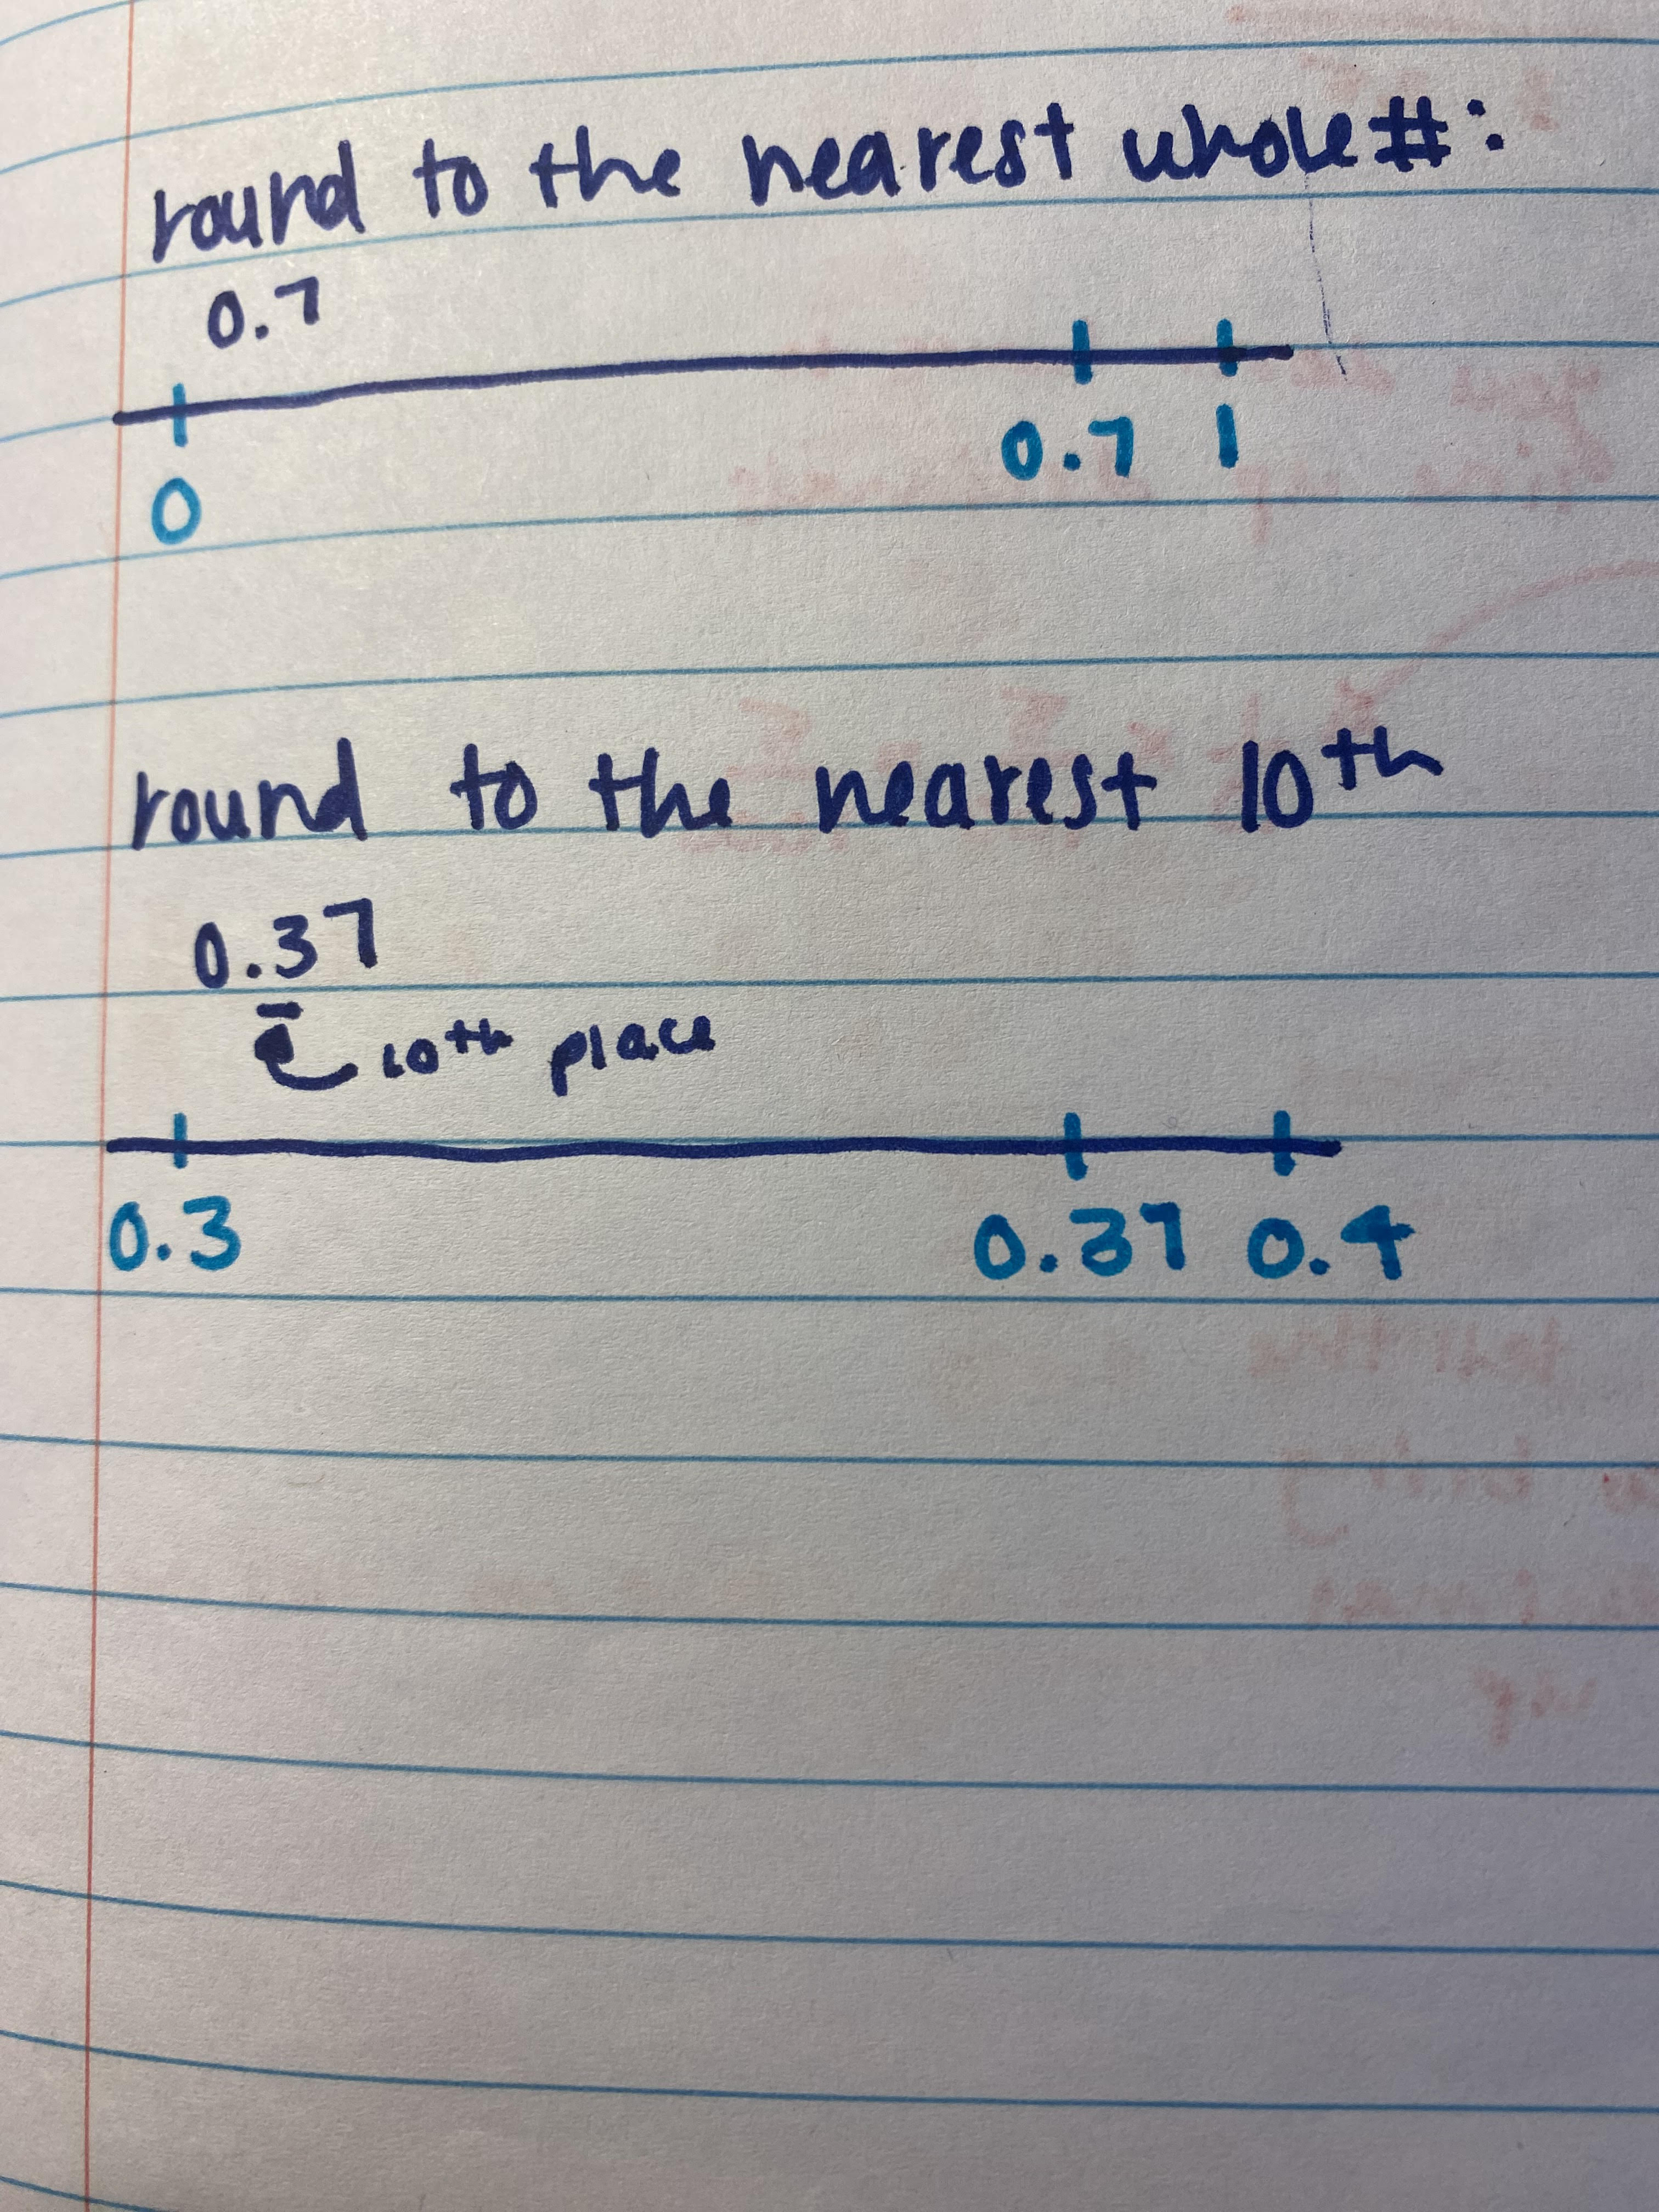 round to the nearest whole #:
0.7
0 0.7 1
round to the nearest 10th
0.37
10th place
0.3 0.37 0.4